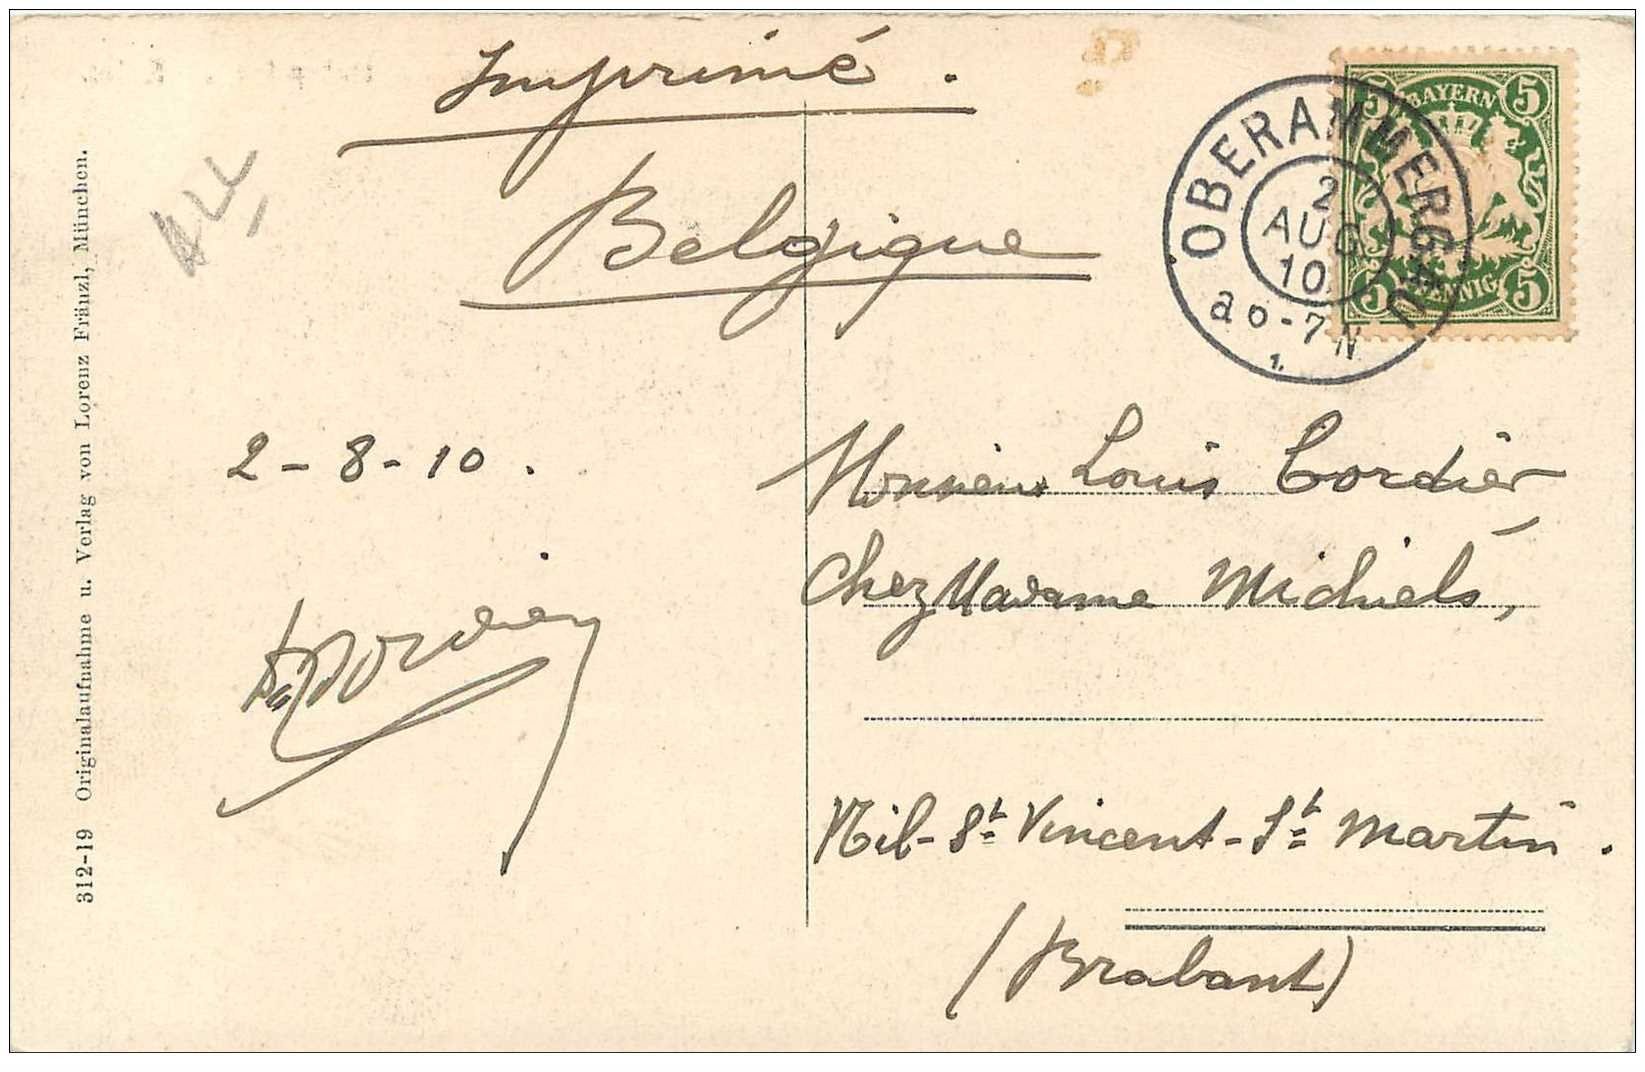 Imprimé.
Belgique
BAYERN
5 5
5 PFENNIG 5
OBERAMMERGAU
2
AUG
10
7 N
1.
ALL
2-8-10.
Cordier
Monsieur Louis Cordier
Chez Madame Michiels,
Nil-St Vincent-St Martin.
(Brabant)
312-19 Originalaufnahme u. Verlag von Lorenz Fränzl, München.